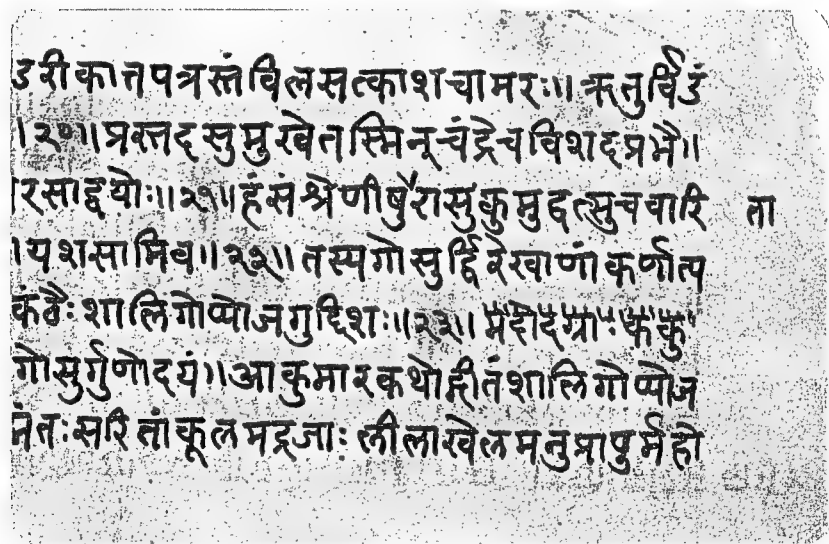 डरीकातपत्रस्तंविलसत्काशचामरः॥ऋतुर्विडं
।२०॥प्रस्तदसुमुखेतस्मिन्‌चंद्रेचविशदप्रभै॥
रसाद्वयोः॥२१॥हंसंश्रेणीषुरासुकुमुद्वत्सुचवारि ता
।यशसामिव॥२२॥तस्यगोसुर्द्विरेखाणांकर्णोत्प
कंठैःशालिगोप्योजगुद्दिशः॥२३॥मदोदग्राःककु
गोसुर्गुणोदयं॥आकुमारकथोद्गीतंशालिगोप्योज
मंतःसरितांकूलमद्रुजाःलीलाखेलमनुप्रापुर्महो